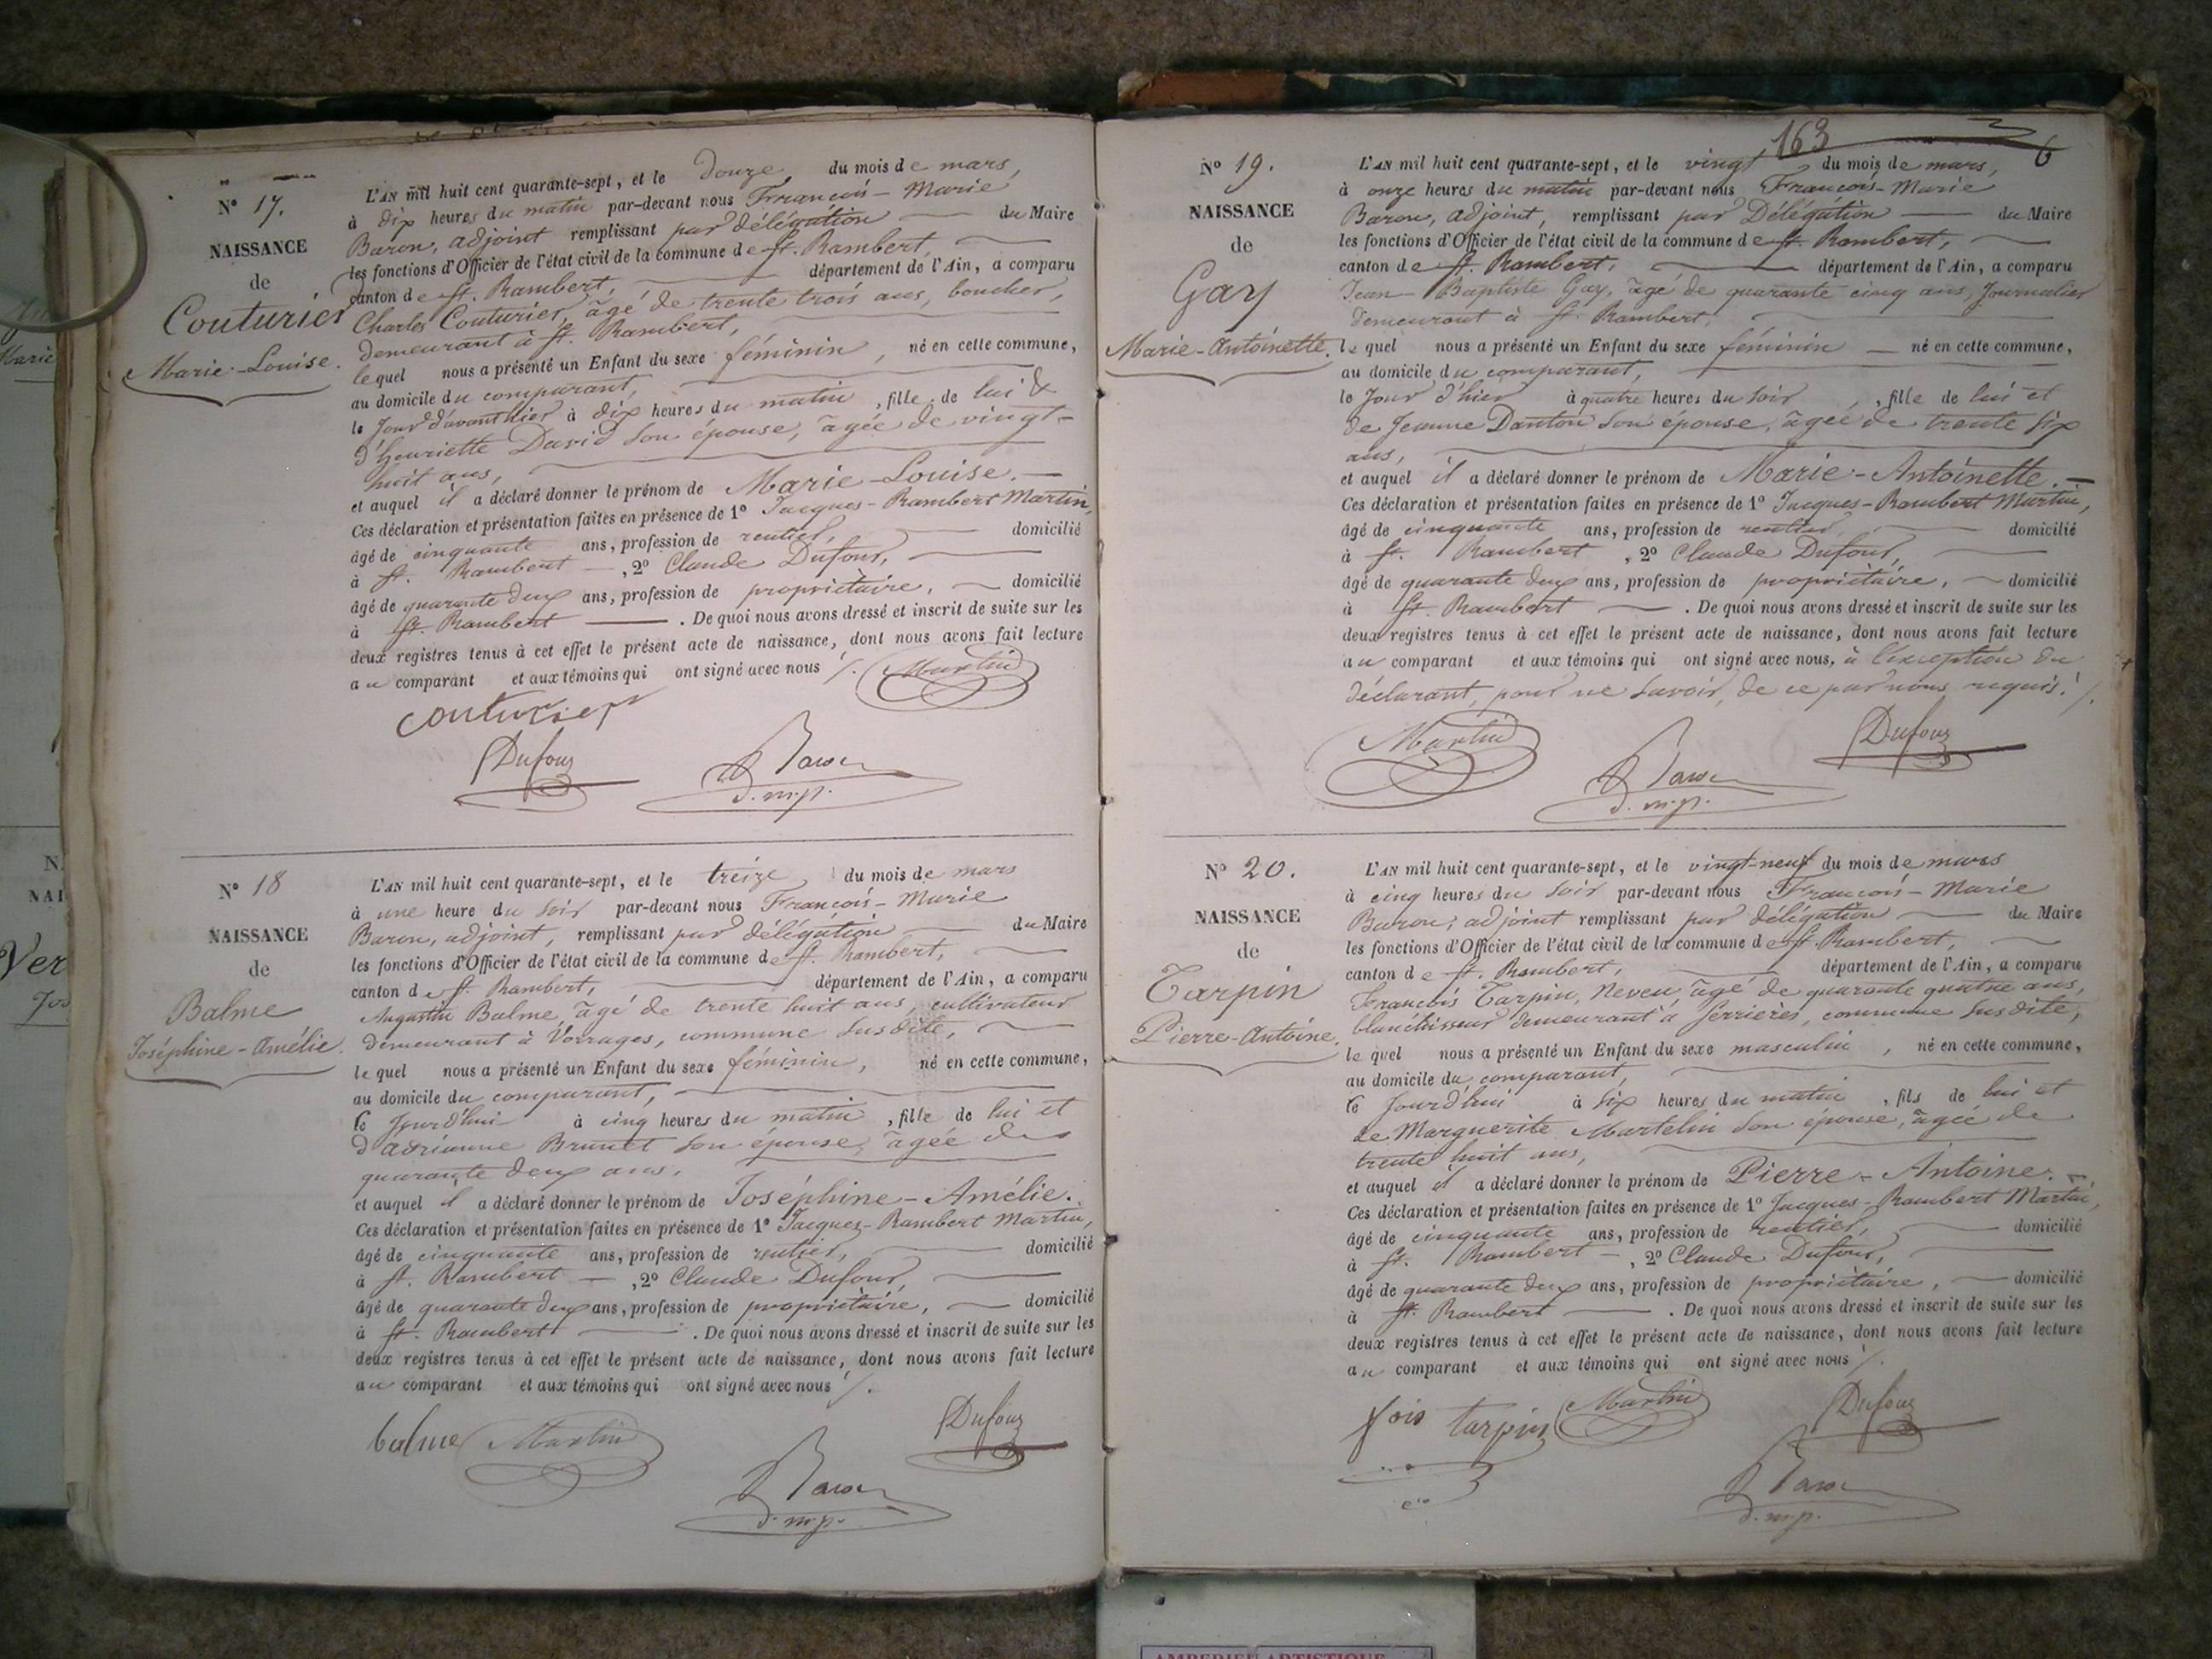 N° 17.
NAISSANCE
de
Couturier
Marie-Louise.
L'AN mil huit cent quarante-sept, et le douze du mois de mars,
à dix heures du matin par-devant nous François-Marie
Baron, adjoint remplissant par délégation du Maire
les fonctions d'Officier de l'état civil de la commune de St. Rambert,
canton de St. Rambert, département de l'Ain, a comparu
Charles Couturier, âgé de trente trois ans, boucher,
demeurant à St. Rambert,
lequel nous a présenté un Enfant du sexe féminin, né en cette commune,
au domicile du comparant,
le Jour d'avant hier à dix heures du matin, fille de lui &
d'henriette David son épouse, âgée de vingt-
huit ans,
et auquel il a déclaré donner le prénom de Marie-Louise.
Ces déclaration et présentation faites en présence de 1° Jacques-Rambert Martin,
âgé de cinquante ans, profession de rentier, domicilié
à St. Rambert, 2° Claude Dufour,
âgé de quarante deux ans, profession de propriétaire, domicilié
à St. Rambert. De quoi nous avons dressé et inscrit de suite sur les
deux registres tenus à cet effet le présent acte de naissance, dont nous avons fait lecture
au comparant et aux témoins qui ont signé avec nous /.
Martin
couturier
Dufour
Baron
d. m. p.
N° 18
NAISSANCE
de
Balme
Joséphine-Amélie.
L'AN mil huit cent quarante-sept, et le treize, du mois de mars
à une heure du soir par-devant nous François-Marie
Baron, adjoint, remplissant par délégation du Maire
les fonctions d'Officier de l'état civil de la commune de St. Rambert,
canton de St. Rambert, département de l'Ain, a comparu
Augustin Balme, âgé de trente huit ans, cultivateur
demeurant à Vorages, commune susdite,
lequel nous a présenté un Enfant du sexe féminin, né en cette commune,
au domicile du comparant,
le Jourd'hui à cinq heures du matin, fille de lui et
d'adrianne Brunet son épouse, âgée de
quarante deux ans.
et auquel il a déclaré donner le prénom de Joséphine-Amélie.
Ces déclaration et présentation faites en présence de 1° Jacques-Rambert Martin,
âgé de cinquante ans, profession de rentier, domicilié
à St. Rambert, 2° Claude Dufour,
âgé de quarante deux ans, profession de propriétaire, domicilié
à St. Rambert. De quoi nous avons dressé et inscrit de suite sur les
deux registres tenus à cet effet le présent acte de naissance, dont nous avons fait lecture
au comparant et aux témoins qui ont signé avec nous /.
balme Martin Dufour
Baron
d. m. p.
163
6
N° 19.
NAISSANCE
de
Gay
Marie-Antoinette.
L'AN mil huit cent quarante-sept, et le vingt du mois de mars,
à onze heures du matin par-devant nous François-Marie
Baron, adjoint, remplissant par Délégation du Maire
les fonctions d'Officier de l'état civil de la commune de St. Rambert,
canton de St. Rambert, département de l'Ain, a comparu
Jean-Baptiste Gay, âgé de quarante cinq ans, Journalier
demeurant à St. Rambert,
lequel nous a présenté un Enfant du sexe féminin né en cette commune,
au domicile du comparant,
le Jour d'hier à quatre heures du soir, fille de lui et
de Jeanne Danton son épouse, âgée de trente six
ans,
et auquel il a déclaré donner le prénom de Marie-Antoinette.
Ces déclaration et présentation faites en présence de 1° Jacques-Rambert Martin,
âgé de cinquante ans, profession de rentier, domicilié
à St. Rambert, 2° Claude Dufour,
âgé de quarante deux ans, profession de propriétaire, domicilié
à St. Rambert. De quoi nous avons dressé et inscrit de suite sur les
deux registres tenus à cet effet le présent acte de naissance, dont nous avons fait lecture
au comparant et aux témoins qui ont signé avec nous, à l'exception du
déclarant, pour ne savoir, de ce par nous requis. /.
Martin
Dufour
Baron
d. m. p.
N° 20.
NAISSANCE
de
Tarpin
Pierre-Antoine.
L'AN mil huit cent quarante-sept, et le vingt-neuf du mois de mars
à cinq heures du soir par-devant nous François-Marie
Baron, adjoint remplissant par délégation du Maire
les fonctions d'Officier de l'état civil de la commune de St. Rambert,
canton de St. Rambert, département de l'Ain, a comparu
François Tarpin, Neveu âgé de quarante quatre ans,
blanchisseur demeurant à Serrières, commune susdite,
lequel nous a présenté un Enfant du sexe masculin, né en cette commune,
au domicile du comparant,
le Jourd'hui à six heures du matin, fils de lui et
de Marguerite Martelin son épouse, âgée de
trente huit ans,
et auquel il a déclaré donner le prénom de Pierre-Antoine.
Ces déclaration et présentation faites en présence de 1° Jacques-Rambert Martin,
âgé de cinquante ans, profession de rentier, domicilié
à St. Rambert, 2° Claude Dufour,
âgé de quarante deux ans, profession de propriétaire, domicilié
à St. Rambert. De quoi nous avons dressé et inscrit de suite sur les
deux registres tenus à cet effet le présent acte de naissance, dont nous avons fait lecture
au comparant et aux témoins qui ont signé avec nous /.
fois tarpin Martin Dufour
Baron
d. m. p.
AMBERIEU ARTISTIQUE